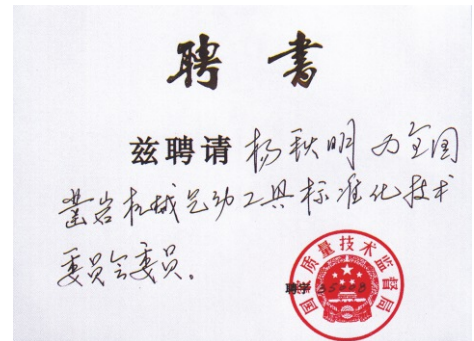 聘书
兹聘请杨秋明为全国
凿岩机械气动工具标准化技术
委员会委员。
国家质量技术监督局